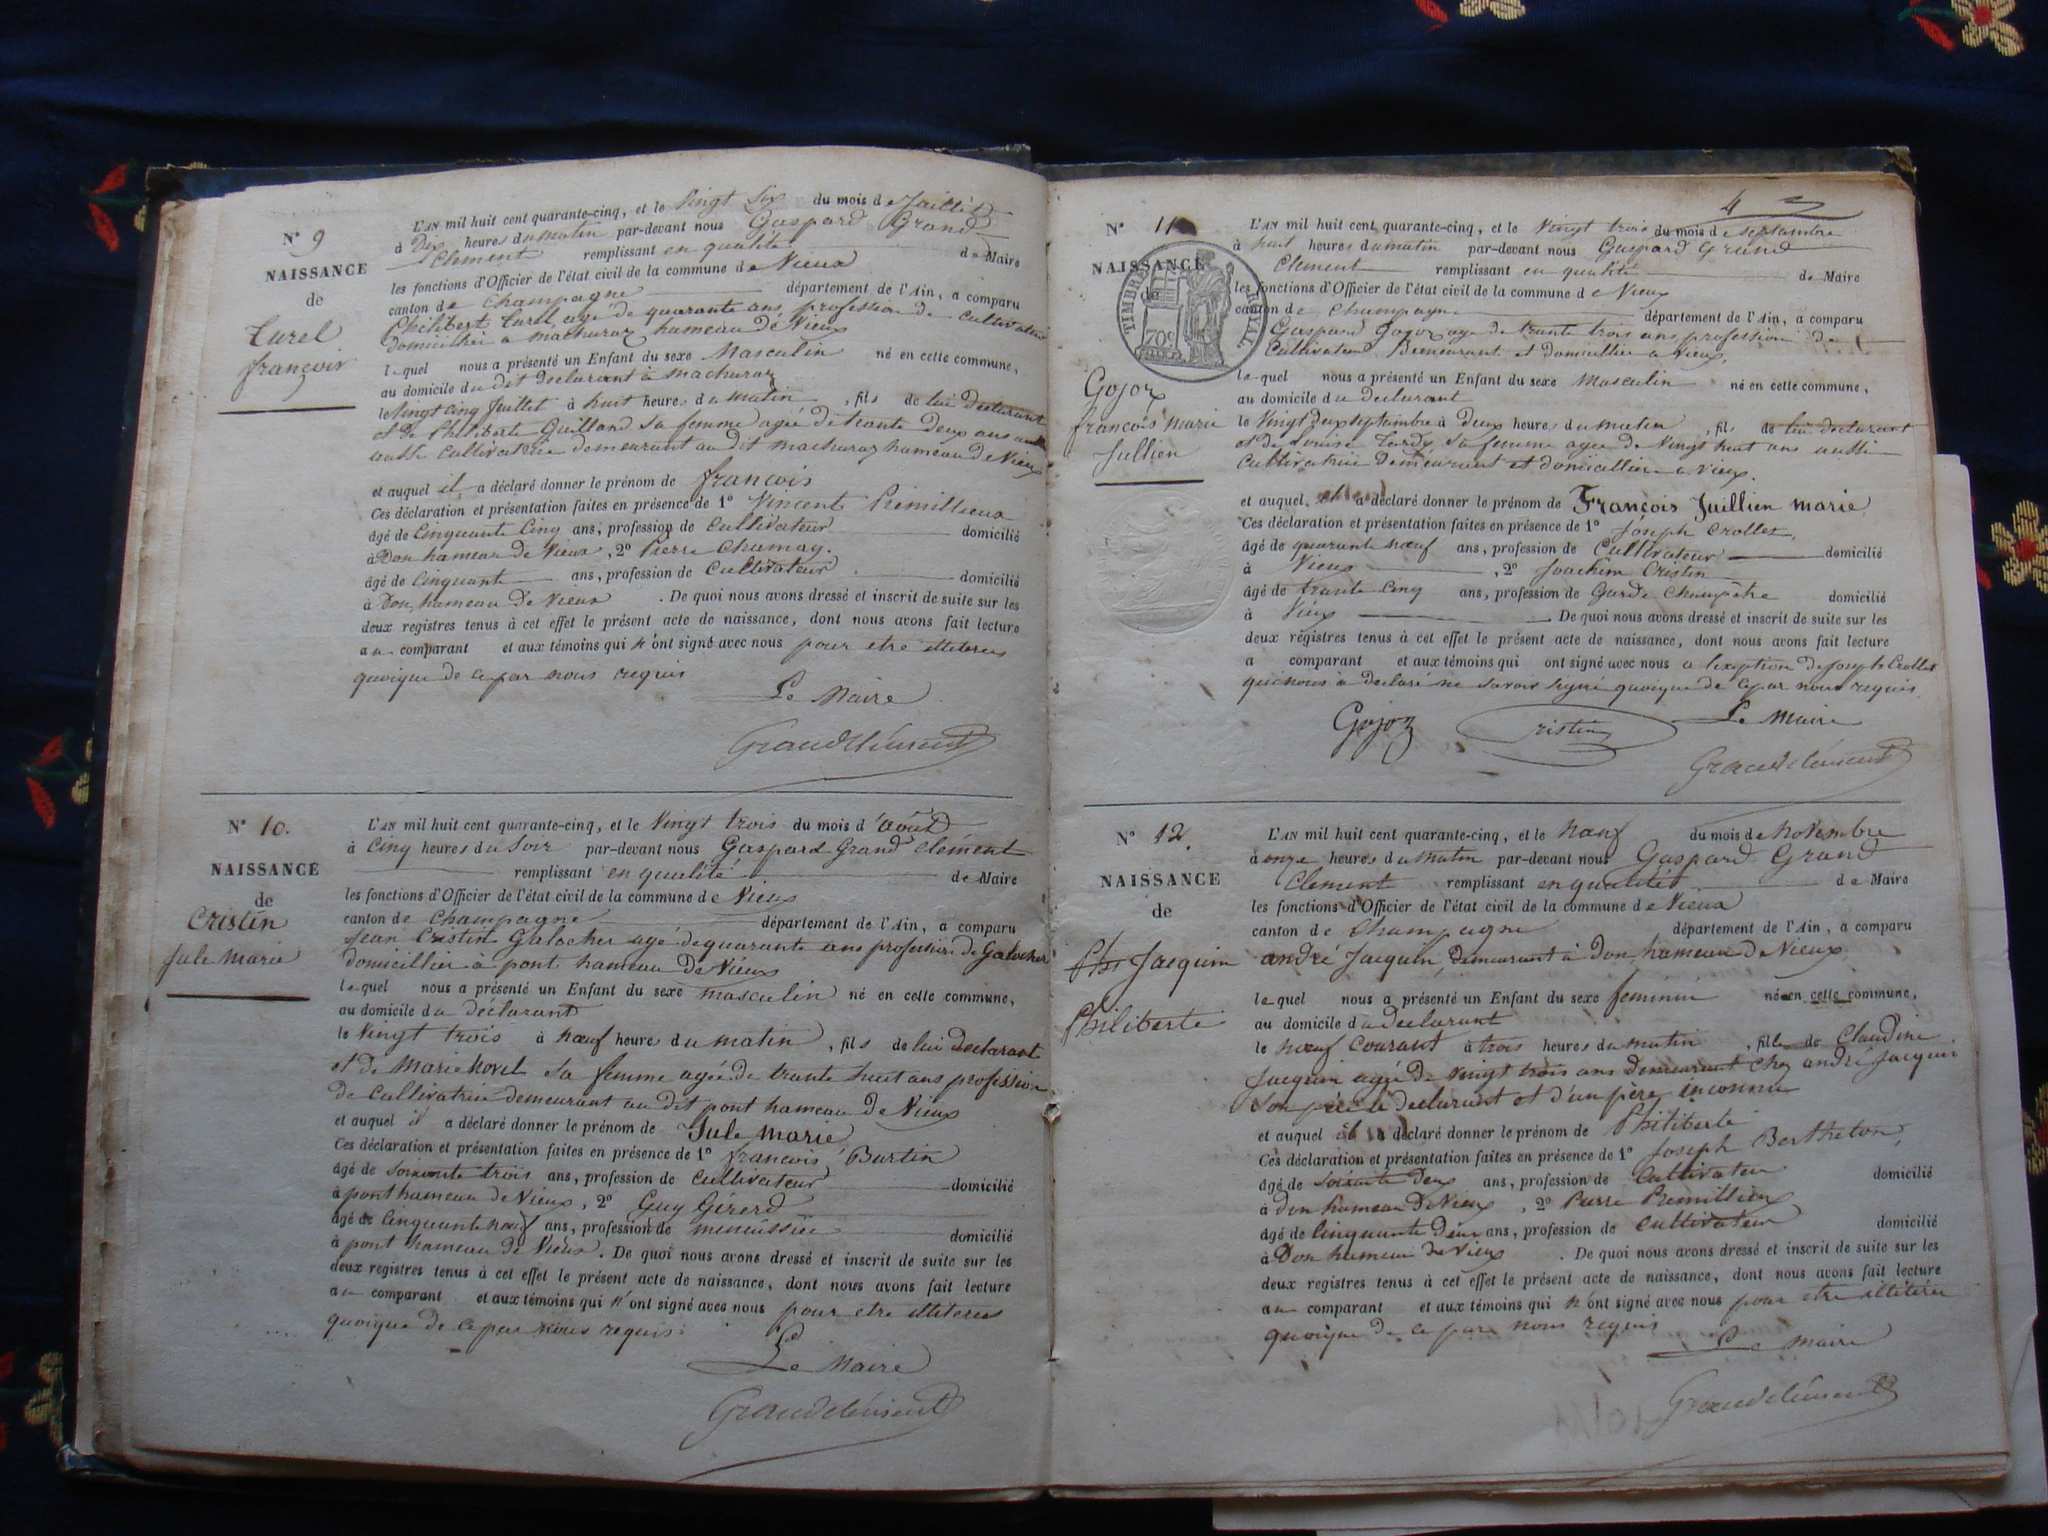 N° 9
NAISSANCE
de
Turel
françois
L'AN mil huit cent quarante-cinq, et le Vingt Six du mois de Juillet
à Dix heures du matin par-devant nous Gaspard Grand
Clement remplissant en qualité de Maire
les fonctions d'Officier de l'état civil de la commune de Vieux
canton de Champagne département de l'Ain, a comparu
Philibert Turel, agé de quarante ans, profession de cultivateur
domicilier à machuraz hameau de Vieux
lequel nous a présenté un Enfant du sexe Masculin né en cette commune,
au domicile du dit declarant à machuraz
le Vingt cinq Juillet à huit heures du matin, fils de lui declarant
et de Philiberte Guilland sa femme agée de trante deux ans
aussi cultivatrice demeurant au dit machuraz hameau de Vieux
et auquel il a déclaré donner le prénom de françois
Ces déclaration et présentation faites en présence de 1° Vincent Premillieux
âgé de Cinquante Cinq ans, profession de Cultivateur domicilié
à Don hameau de Vieux, 2° Pierre Chumay.
âgé de Cinquant ans, profession de Cultivateur domicilié
à Don, hameau de Vieux. De quoi nous avons dressé et inscrit de suite sur les
deux registres tenus à cet effet le présent acte de naissance, dont nous avons fait lecture
au comparant et aux témoins qui n'ont signé avec nous pour etre illiteres
quoique de ce par nous requis
Le Maire
Grandclément
N° 10.
NAISSANCE
de
Cristin
Jule marie
L'AN mil huit cent quarante-cinq, et le Vingt trois du mois d'août
à Cinq heures du Soir par-devant nous Gaspard Grand Clément
remplissant en qualité de Maire
les fonctions d'Officier de l'état civil de la commune de Vieux
canton de Champagne département de l'Ain, a comparu
Jean Cristin Galocher agé de quarante ans profession de Galocher
domicillier à pont hameau de Vieux
lequel nous a présenté un Enfant du sexe masculin né en cette commune,
au domicile du déclarant
le Vingt trois à nœuf heures du matin, fils de lui declarant
et de Marie Hovel sa femme agée de trante huit ans profession
de Cultivatrice demeurant au dit pont hameau de Vieux
et auquel il a déclaré donner le prénom de Jule marie
Ces déclaration et présentation faites en présence de 1° françois Burtin
âgé de soixante trois ans, profession de Cultivateur domicilié
à pont hameau de Vieux, 2° Guy Gérerd
âgé de Cinquante nœuf ans, profession de menuissiée domicilié
à pont hameau de Vieux. De quoi nous avons dressé et inscrit de suite sur les
deux registres tenus à cet effet le présent acte de naissance, dont nous avons fait lecture
au comparant et aux témoins qui n'ont signé avec nous pour etre illiteres
quoique de ce par nous requis
Le Maire
Grandclément
4
N° 11
NAISSANCE
de
TIMBRE ROYAL
70c
Gojoz
françois marie
Jullien
L'AN mil huit cent quarante-cinq, et le Vingt trois du mois de septembre
à huit heures du matin par-devant nous Gaspard Grand
Clement remplissant en qualité de Maire
les fonctions d'Officier de l'état civil de la commune de Vieux
canton de Champagne département de l'Ain, a comparu
Gaspard Gojoz, age de trante trois ans profession de
Cultivateur Demeurant et domicillier a Vieux,
lequel nous a présenté un Enfant du sexe Masculin né en cette commune,
au domicile du declarant
le Vingt deux septembre à deux heures du matin, fils de lui declarant
et de Louise Tardy sa femme agee de Vingt huit ans aussi
Cultivatrice demeurant et domicillier a Vieux.
et auquel il a déclaré donner le prénom de François Juillien marie
Ces déclaration et présentation faites en présence de 1° Joseph Crollet,
âgé de quarante nœuf ans, profession de Cultivateur domicilié
à Vieux, 2° Joachim Cristin
âgé de trante Cinq ans, profession de Garde Champêtre domicilié
à Vieux De quoi nous avons dressé et inscrit de suite sur les
deux registres tenus à cet effet le présent acte de naissance, dont nous avons fait lecture
a comparant et aux témoins qui ont signé avec nous a l'exeption de Joseph Crollet
qui nous à déclaré ne savoir signé quoique de ce par nous requis.
Gojoz Cristin Le Maire
Grandclément
N° 12.
NAISSANCE
de
Jacquin
Philiberte
L'AN mil huit cent quarante-cinq, et le nœuf du mois de Novembre
à onze heures du matin par-devant nous Gaspard Grand
Clement remplissant en qualité de Maire
les fonctions d'Officier de l'état civil de la commune de Vieux
canton de Champagne département de l'Ain, a comparu
andré Jacquin, demeurant à Don, hameau de Vieux,
lequel nous a présenté un Enfant du sexe feminin né en cette commune,
au domicile du declarant
le nœuf Courant à trois heures du matin, fille de Claudine
Jacquin agée de vingt trois ans demeurant chez andré Jacquin
son père le declarant et d'un père inconnu
et auquel il a déclaré donner le prénom de Philiberte
Ces déclaration et présentation faites en présence de 1° Joseph Bertheton,
âgé de soixante deux ans, profession de Cultivateur domicilié
à Don hameau de Vieux, 2° Pierre Premillieux
âgé de Cinquante deux ans, profession de Cultivateur domicilié
à Don hameau de Vieux. De quoi nous avons dressé et inscrit de suite sur les
deux registres tenus à cet effet le présent acte de naissance, dont nous avons fait lecture
au comparant et aux témoins qui n'ont signé avec nous pour etre illitérer
quoique de ce par nous requis
Le maire
Grandclément